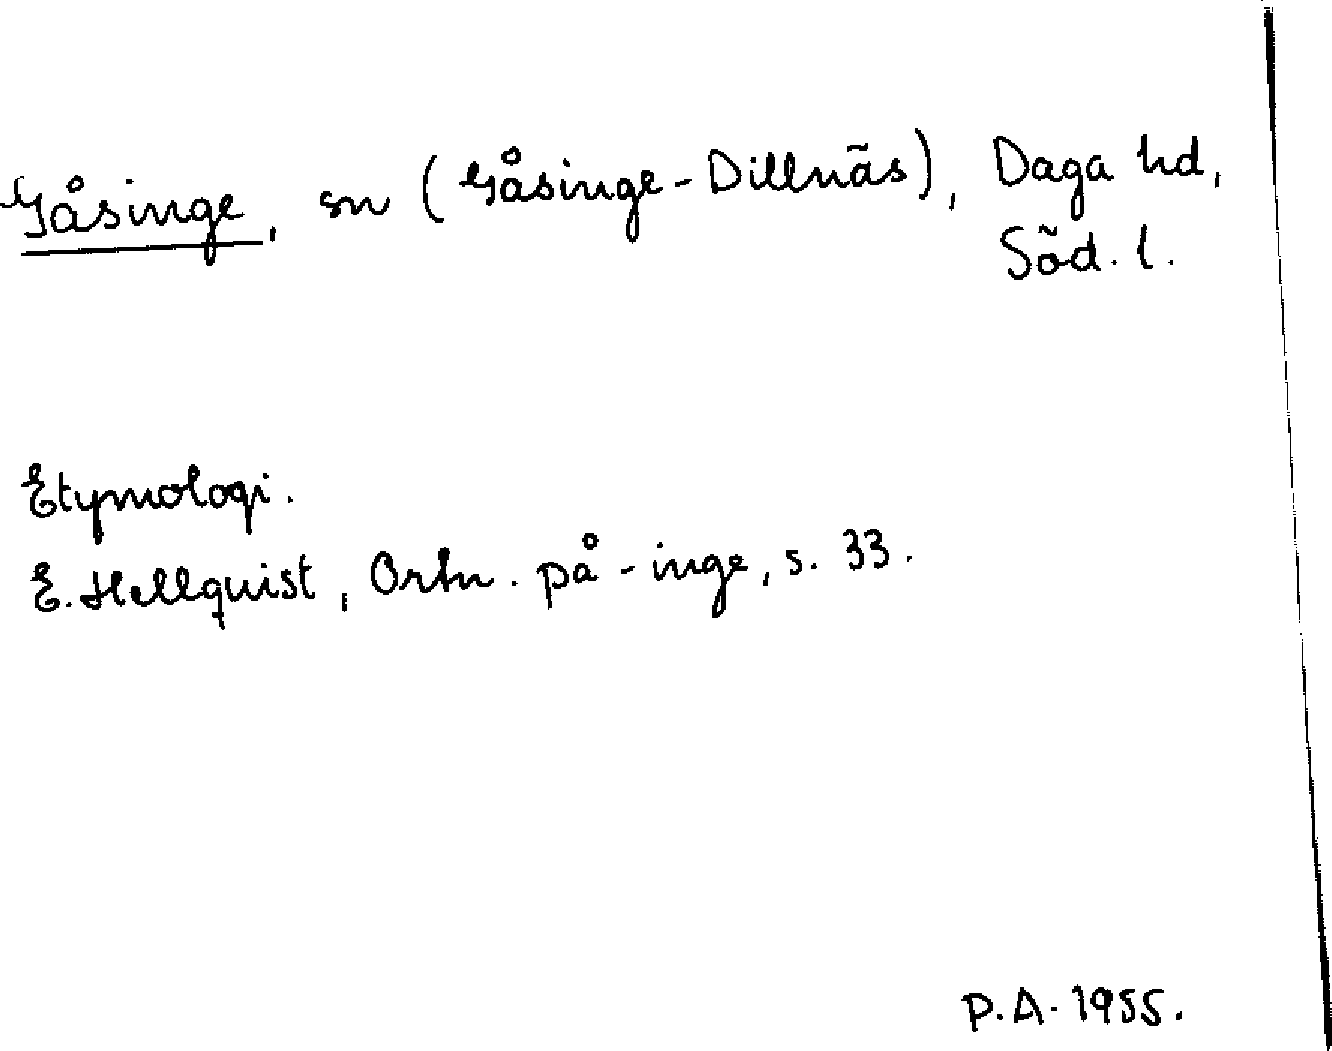 Gåsinge, sn (Gåsinge-Dillnäs), Daga hd,
Söd. l.
Etymologi.
E. Hellquist, Ortn. på -inge, s. 33.
P.A. 1955.